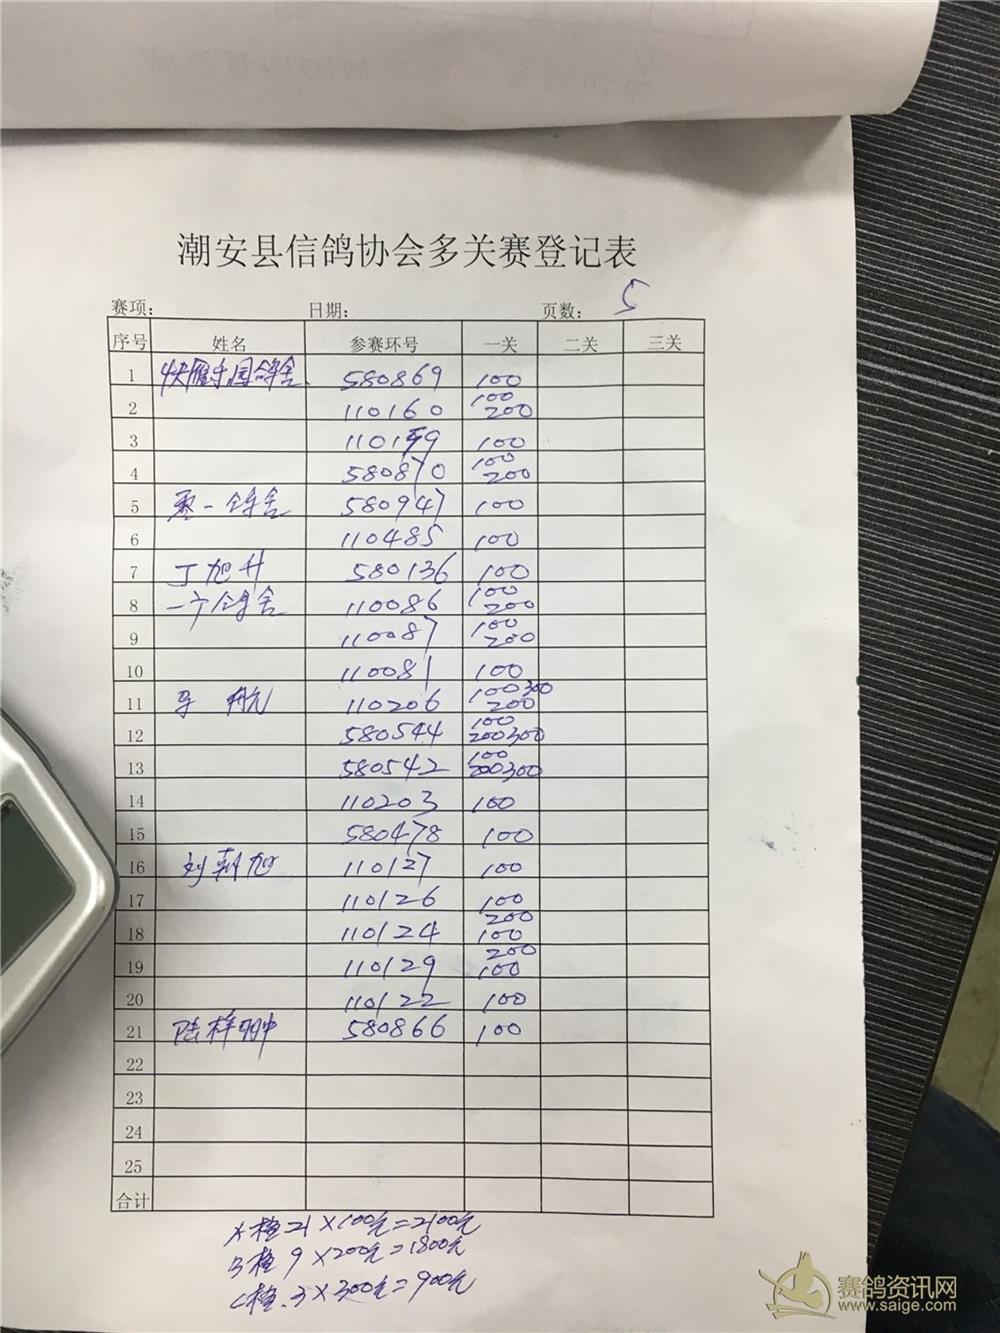 潮安县信鸽协会多关赛登记表
赛项: 日期: 页数: 5
序号 姓名 参赛环号 一关 二关 三关
1 快雁乐园鸽舍 580869 100
2 110160 100 200
3 110159 100
4 580870 100 200
5 一鸽舍 580947 100
6 110485 100
7 丁旭升 580136 100
8 一宁鸽舍 110086 100 200
9 110087 100 200
10 110081 100
11 马航 110206 100 300 200
12 580544 100 200 300
13 580542 100 200 300
14 110203 100
15 580478 100
16 刘朝旭 110127 100
17 110126 100
18 110124 200 100
19 110129 200 100
20 110122 100
21 陆梓翀 580866 100
22
23
24
25
合计
A档 21×100元=2100元
B档 9×200元=1800元
C档. 3×300元=900元
赛鸽资讯网
www.saige.com